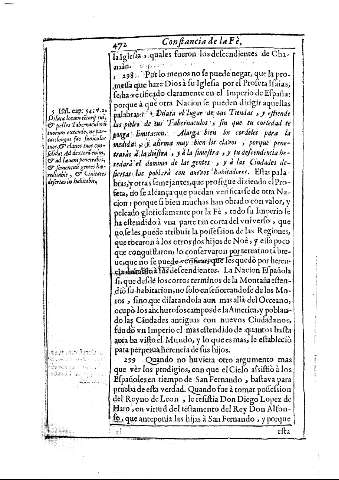 472
Constancia de la Fè,
la Iglesia, quales fueron los descendientes de Cha-
naàn.
238. Por lo menos no se puede negar, que la pro-
messa que haze Dios à su Iglesia por el Profeta Isaias,
se ha verificado claramente en el Imperio de España:
porque à què otra Nacion se pueden dirigir aquellas
palabras: Dilata el lugar de tus Tiendas, y estiende
las pieles de tus Tabernaculos, sin que tu cortedad te
ponga limitacion. Alarga bien los cordeles para la
medida, y afirma muy bien los clavos, porque pene-
traràs à la diestra, y à la siniestra, y tu descendencia he-
redarà el dominio de las gentes, y à las Ciudades de-
siertas las poblarà con nuevos habitadores. Estas pala-
bras, y otras semejantes, que prosigue diziendo el Pro-
feta, no se alcança que puedan verificarse de otra Na-
cion: porque si bien muchas han obrado con valor, y
peleado gloriosamente por la Fè, todo su Imperio se
ha estrechado à una parte tan corta del universo, que
no se les puede atribuir la possesion de las Regiones,
que tocaron à los otros dos hijos de Noè; y esto poco
que conquistaron lo conservaron por termino tan bre-
ve, que no se puede verificar que les quedò por heren-
cia à los descendientes. La Nacion Española
si, que desde los cortos terminos de la Montaña esten-
diò su habitacion, no solo en señoreandose de los Mo-
ros, sino que dilatandola aun mas allà del Oceano,
ocupò los anchurosos campos de la America, y poblan-
do las Ciudades antiguas con nuevos Ciudadanos,
fundò un Imperio el mas estendido de quantos hasta
aora ha visto el Mundo, y lo que es mas, le estableciò
para perpetua herencia de sus hijos.
259 Quando no huviera otro argumento mas
que ver los prodigios, con que el Cielo assistiò à los
Españoles en tiempo de San Fernando, bastava para
prueba de esta verdad. Quando fue à tomar possession
del Reyno de Leon, le resistia Don Diego Lopez de
Haro, en virtud del testamento del Rey Don Alfon-
so, que anteponia las hijas à San Fernando, y porque
esta